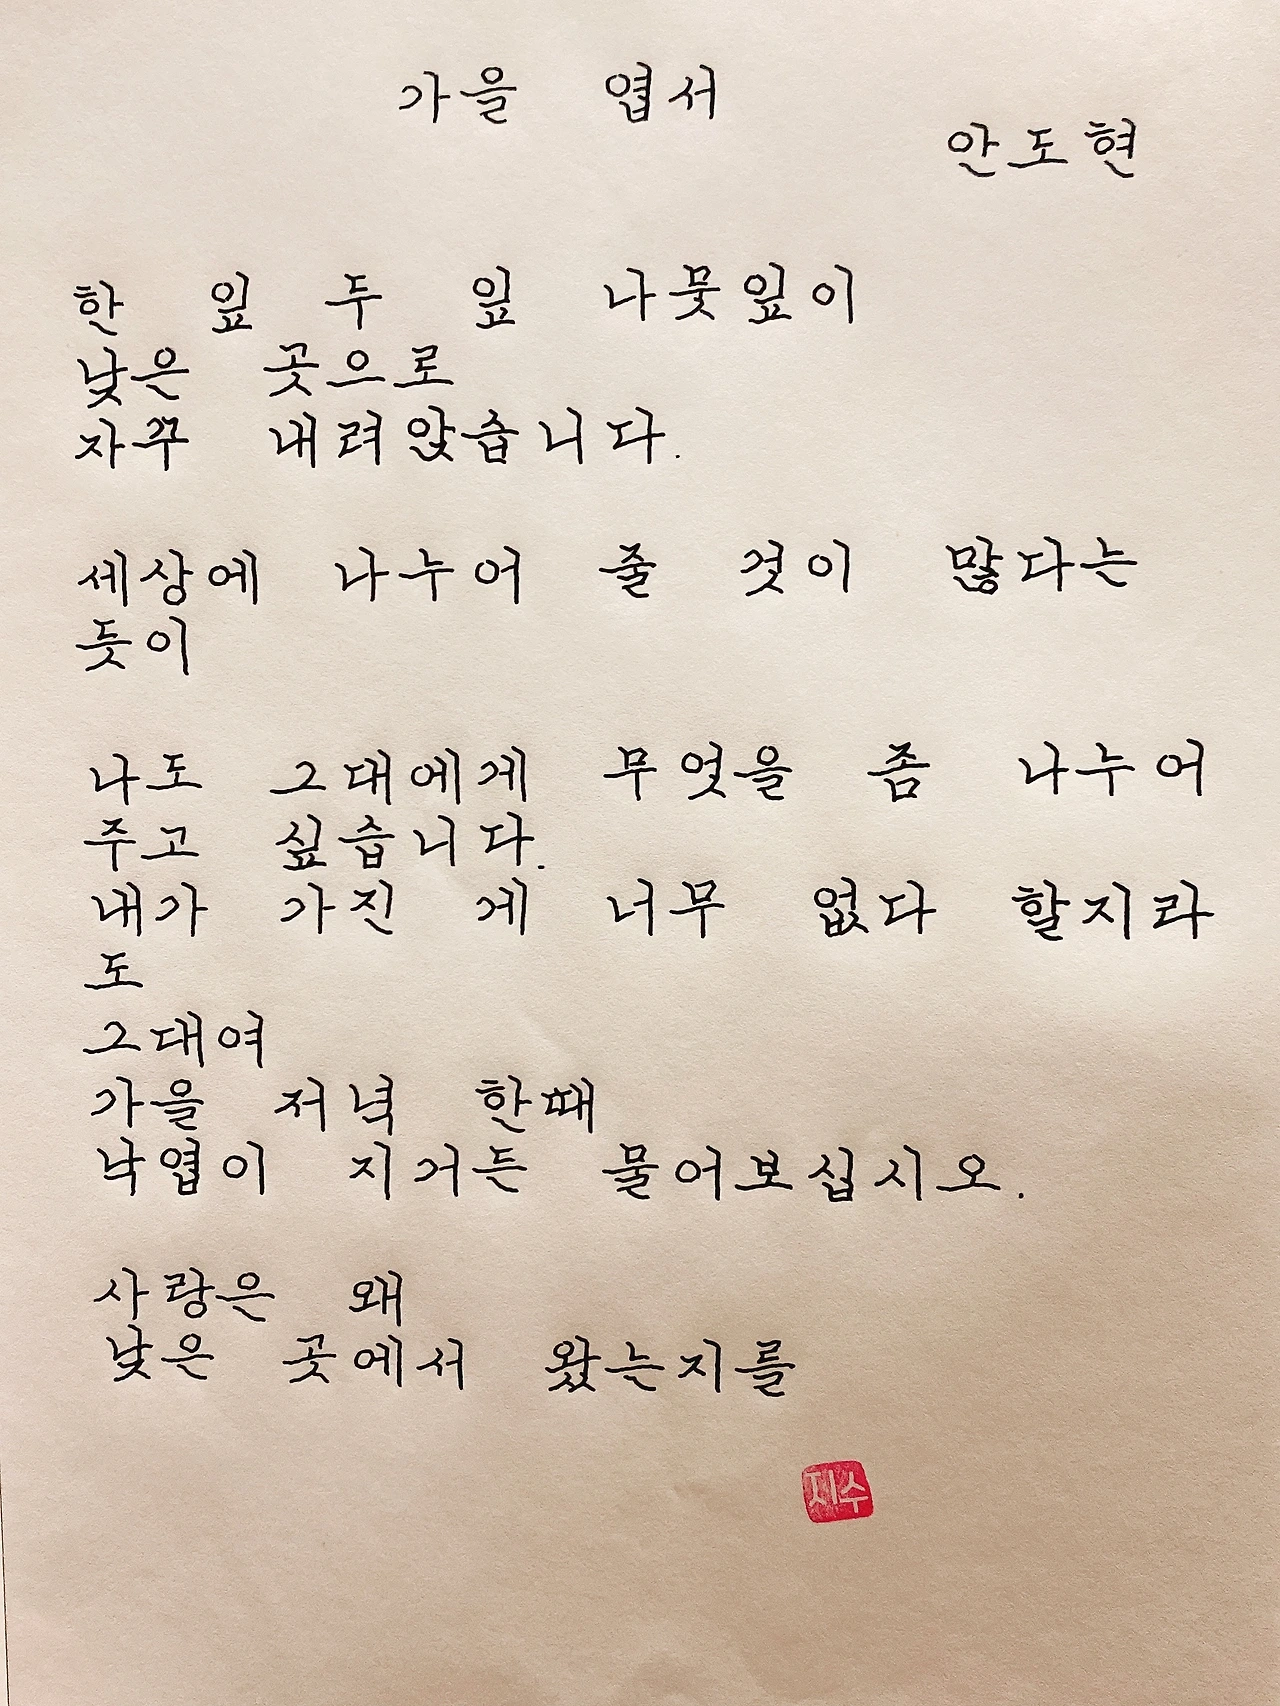 가을 엽서
안도현
한 잎 두 잎 나뭇잎이
낮은 곳으로
자꾸 내려앉습니다.
세상에 나누어 줄 것이 많다는
듯이
나도 그대에게 무엇을 좀 나누어
주고 싶습니다.
내가 가진 게 너무 없다 할지라
도
그대여
가을 저녁 한때
낙엽이 지거든 물어보십시오.
사랑은 왜
낮은 곳에서 왔는지를
지수